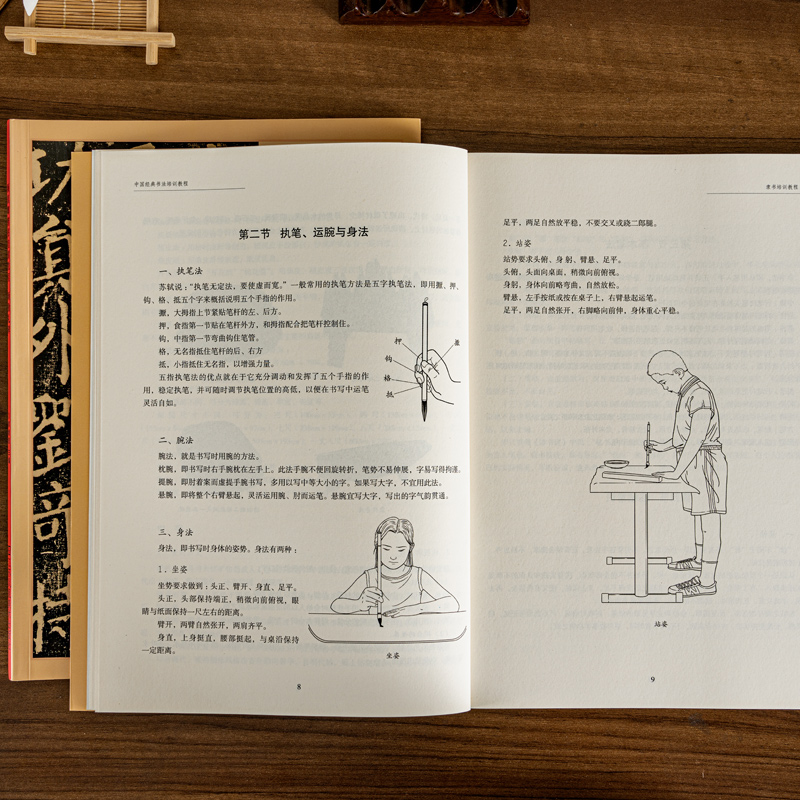 中国经典书法培训教程
第二节 执笔、运腕与身法
一、执笔法
苏轼说:“执笔无定法,要使虚而宽。”一般常用的执笔方法是五字执笔法,即用擫、押、
钩、格、抵五个字来概括说明五个手指的作用。
擫,大拇指上节紧贴笔杆的左、后方。
押,食指第一节贴在笔杆外方,和拇指配合把笔杆控制住。
钩,中指第一节弯曲钩住笔管。
格,无名指抵住笔杆的后、右方
抵,小指抵住无名指,以增强力量。
五指执笔法的优点就在于它充分调动和发挥了五个手指的作
用,稳定执笔,并可随时调节执笔位置的高低,以便在书写中运笔
灵活自如。
押
钩
格
抵
二、腕法
腕法,就是书写时用腕的方法。
枕腕,即书写时右手腕枕在左手上。此法手腕不便回旋转折,笔势不易伸展,字易写得拘谨。
提腕,即肘着案而虚提手腕书写,多用以写中等大小的字。如果写大字,不宜用此法。
悬腕,即将整个右臂悬起,灵活运用腕、肘而运笔。悬腕宜写大字,写出的字气韵贯通。
三、身法
身法,即书写时身体的姿势。身法有两种:
1.坐姿
坐势要求做到:头正、臂开、身直、足平。
头正,头部保持端正,稍微向前俯视,眼
睛与纸面保持一尺左右的距离。
臂开,两臂自然张开,两肩齐平。
身直,上身挺直,腰部挺起,与桌沿保持
一定距离。
坐姿
8
隶书培训教程
足平,两足自然放平稳,不要交叉或跷二郎腿。
2.站姿
站势要求头俯、身躬、臂悬、足平。
头俯,头面向桌面,稍微向前俯视。
身躬,身体向前略弯曲,自然放松。
臂悬,左手按纸或按在桌子上,右臂悬起运笔。
足平,两足自然张开,右脚略向前伸,身体重心平稳。
站姿
9